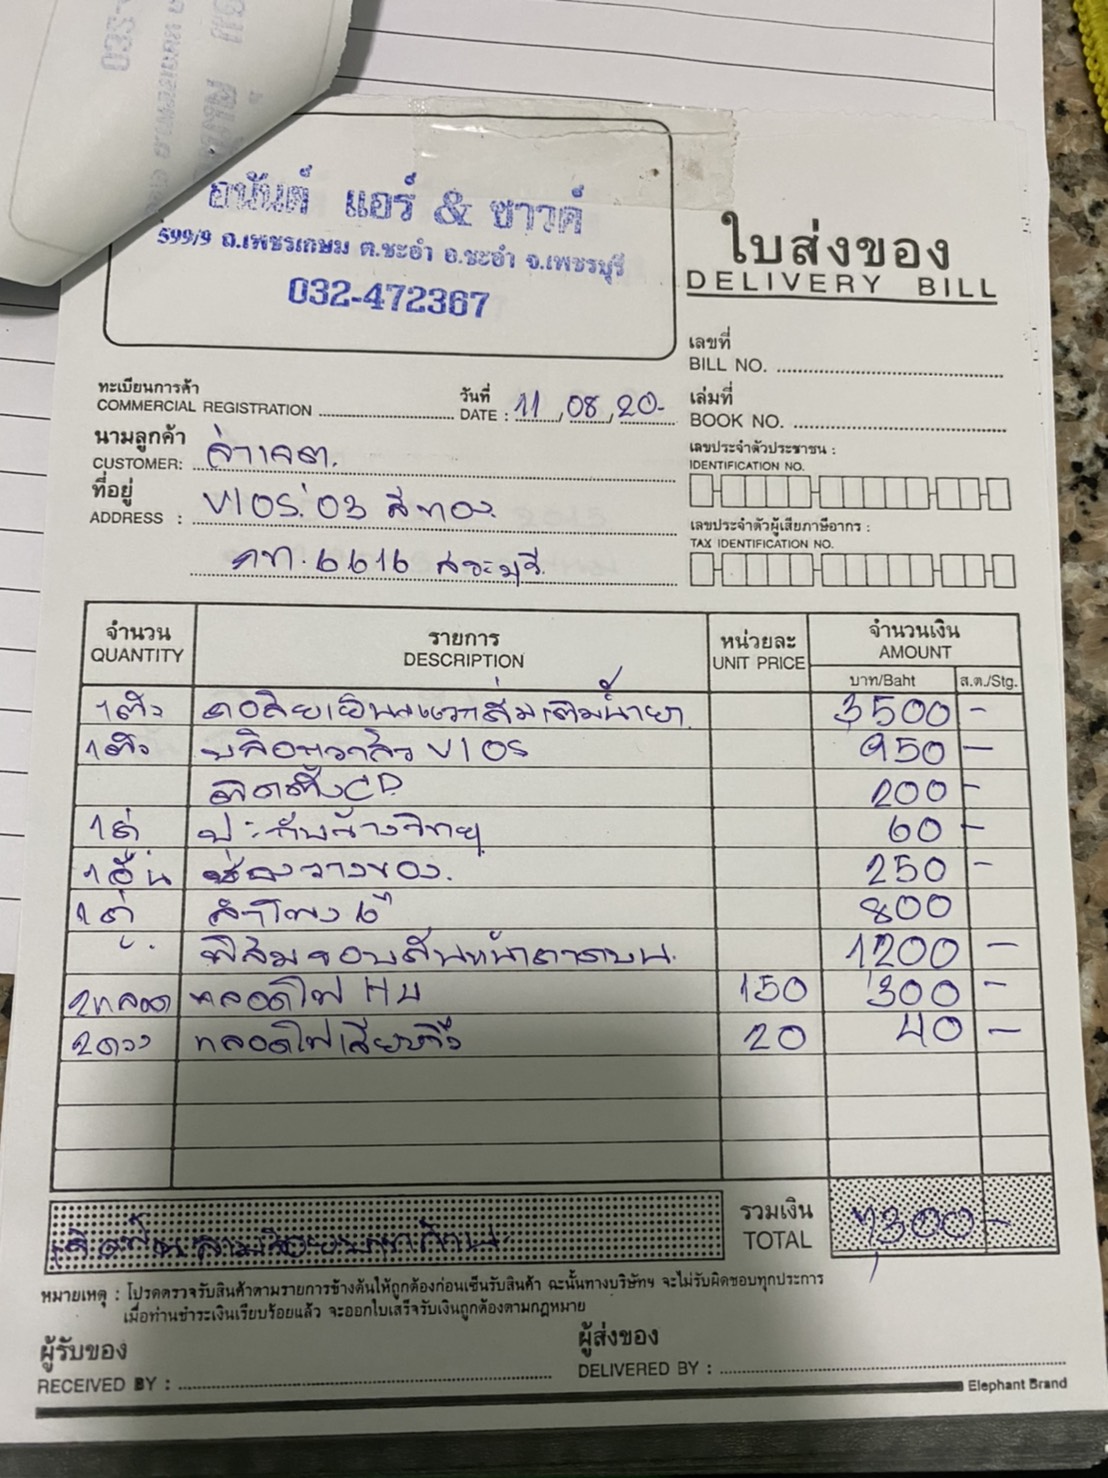 อนันต์ แอร์ & ซาวด์
599/9 ถ.เพชรเกษม ต.ชะอำ อ.ชะอำ จ.เพชรบุรี
032-472367
ใบส่งของ
DELIVERY BILL
เลขที่
BILL NO.
ทะเบียนการค้า
COMMERCIAL REGISTRATION
วันที่
DATE : 11 / 08 / 20-
เล่มที่
BOOK NO.
นามลูกค้า
CUSTOMER:
เลขประจำตัวประชาชน :
IDENTIFICATION NO.
ที่อยู่
ADDRESS : VIOS'03 สีทอง
เลขประจำตัวผู้เสียภาษีอากร :
TAX IDENTIFICATION NO.
6616 สระบุรี
จำนวน QUANTITY รายการ DESCRIPTION หน่วยละ UNIT PRICE จำนวนเงิน AMOUNT
บาท/Baht ส.ต./Stg.
1ตัว 3500 -
1ตัว VIOS 950 -
ติดตั้ง CD 200 -
1คู่ 60 -
1อัน ช่องวางของ. 250 -
1คู่ ลำโพง 6" 800
1200 -
2หลอด หลอดไฟ H4 150 300 -
2ดวง หลอดไฟเสียบ 20 40 -
รวมเงิน
TOTAL 7,300 -
หมายเหตุ : โปรดตรวจรับสินค้าตามรายการข้างต้นให้ถูกต้องก่อนเซ็นรับสินค้า ฉะนั้นทางบริษัทฯ จะไม่รับผิดชอบทุกประการ
เมื่อท่านชำระเงินเรียบร้อยแล้ว จะออกใบเสร็จรับเงินถูกต้องตามกฎหมาย
ผู้รับของ
RECEIVED BY :
ผู้ส่งของ
DELIVERED BY :
Elephant Brand